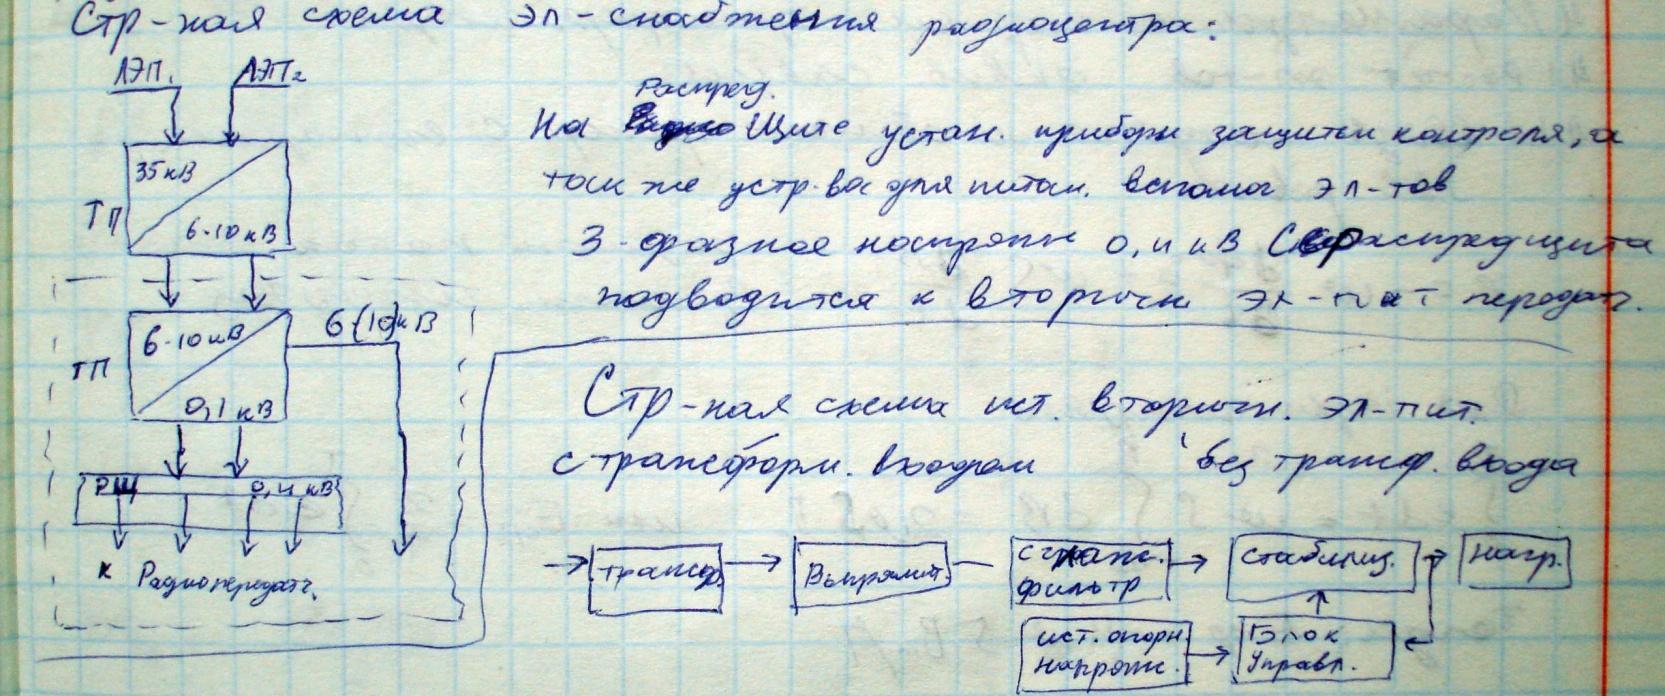 Стр-ная схема эл-снабжения радиоцентра:
ЛЭП₁ ЛЭП₂
35 кВ
ТП
6-10 кВ
6-10 кВ
6(10)кВ
ТП
0,1 кВ
РЩ 0,4 кВ
к Радиопередатч.
Распред.
На Щите устан. приборы защиты контроля, а
так же устр-ва для питан. вспомог эл-тов
3-фазное напряжн 0,4 кВ С распредщита
подводится к вторичн эл-пит передатч.
Стр-ная схема ист. вторичн. эл-пит.
с трансформ. входом без трансф. входа
трансф. Выпрямит. сглаж. фильтр стабилиз. нагр.
ист. опорн. напряж. Блок Управл.